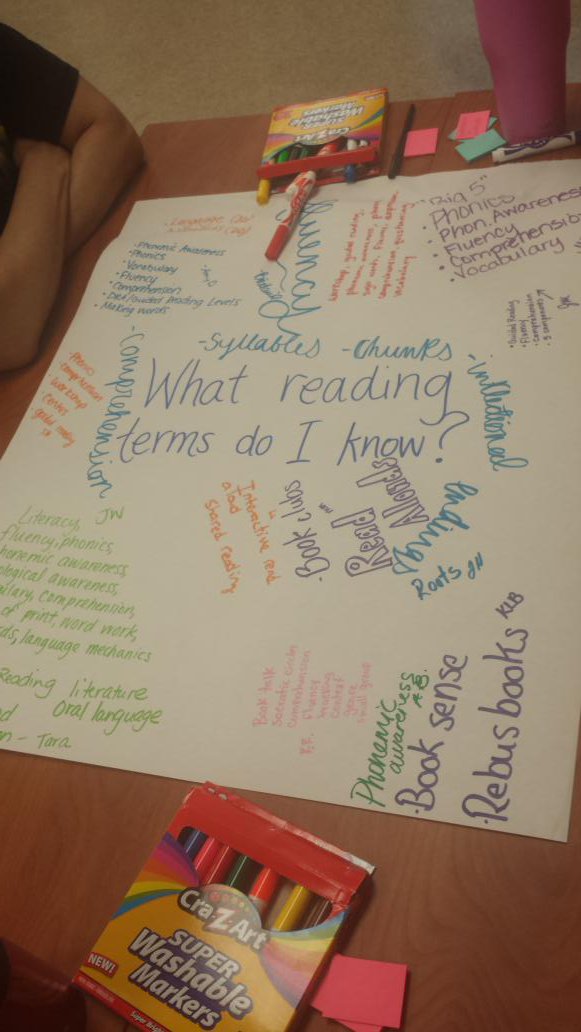 CraZArt
SUPER
Washable
Markers
Fluency
"Big 5"
Phonics
Phon. Awareness
Fluency
Comprehensio
Vocabulary
Phonemic Awareness
Phonics
Vocabulary
Fluency
Comprehension
DRA/Guided Reading Levels
Making words
Guided Reading
Fluency
comprehension
5 components
-Syllables -Chunks
-inflectional
endings
-comprehension
What reading
terms do I know?
Phonics
comprehension
workshop
guided reading
Book clubs
Read
Alouds
Roots
Interactive read
aloud
Shared reading
Literacy, JW
fluency, phonics,
honemic awareness,
ological awareness,
ulary, comprehension,
of print, word work,
ds, language mechanics
Reading literature
Oral language
n - Tara
Book talk
Socratic circles
Comprehension
Fluency
Context
Genre
Small group
Phonemic
awareness
Book sense
Rebus books KLB
CraZArt
NEW!
SUPER
Washable
Markers